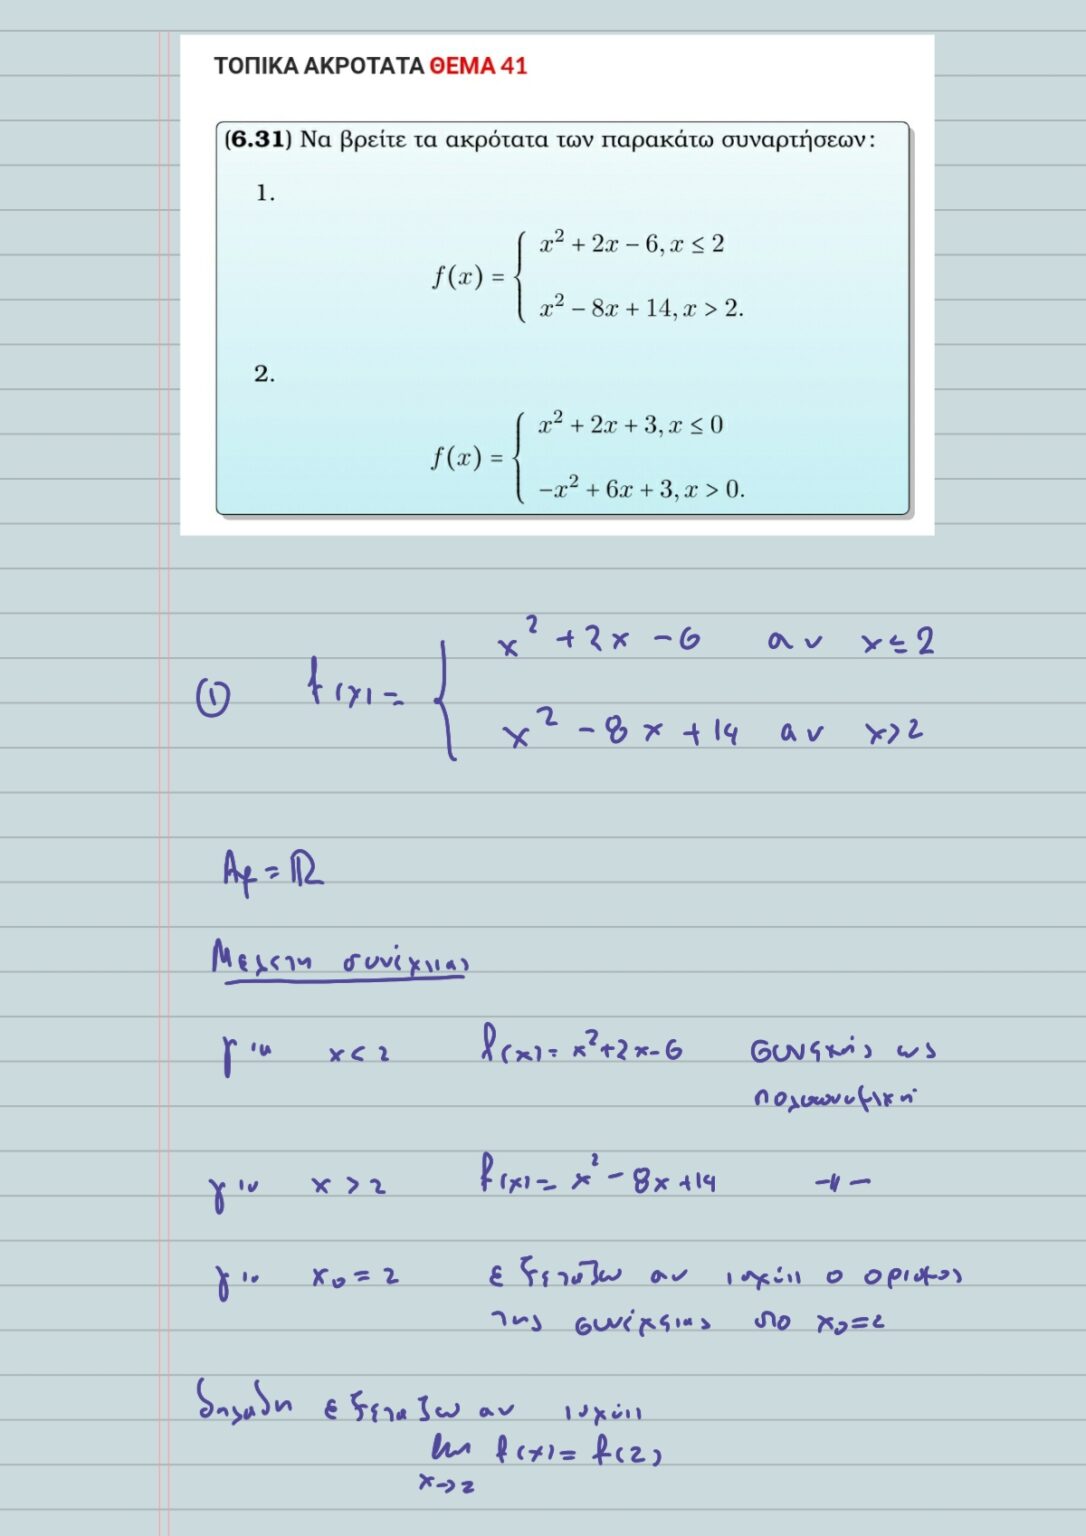 ΤΟΠΙΚΑ ΑΚΡΟΤΑΤΑ ΘΕΜΑ 41
(6.31) Να βρείτε τα ακρότατα των παρακάτω συναρτήσεων:
1.
f(x) = { x² + 2x − 6, x ≤ 2
x² − 8x + 14, x > 2.
2.
f(x) = { x² + 2x + 3, x ≤ 0
−x² + 6x + 3, x > 0.
① f(x) = { x² + 2x − 6 αν x ≤ 2
x² − 8x + 14 αν x > 2
Af = ℝ
Μελέτη συνέχειας
για x < 2 f(x) = x² + 2x − 6 συνεχής ως
πολυωνυμική
για x > 2 f(x) = x² − 8x + 14 −〃−
για x₀ = 2 εξετάζω αν ισχύει ο ορισμός
της συνέχειας στο x₀ = 2
δηλαδή εξετάζω αν ισχύει
lim f(x) = f(2)
x→2